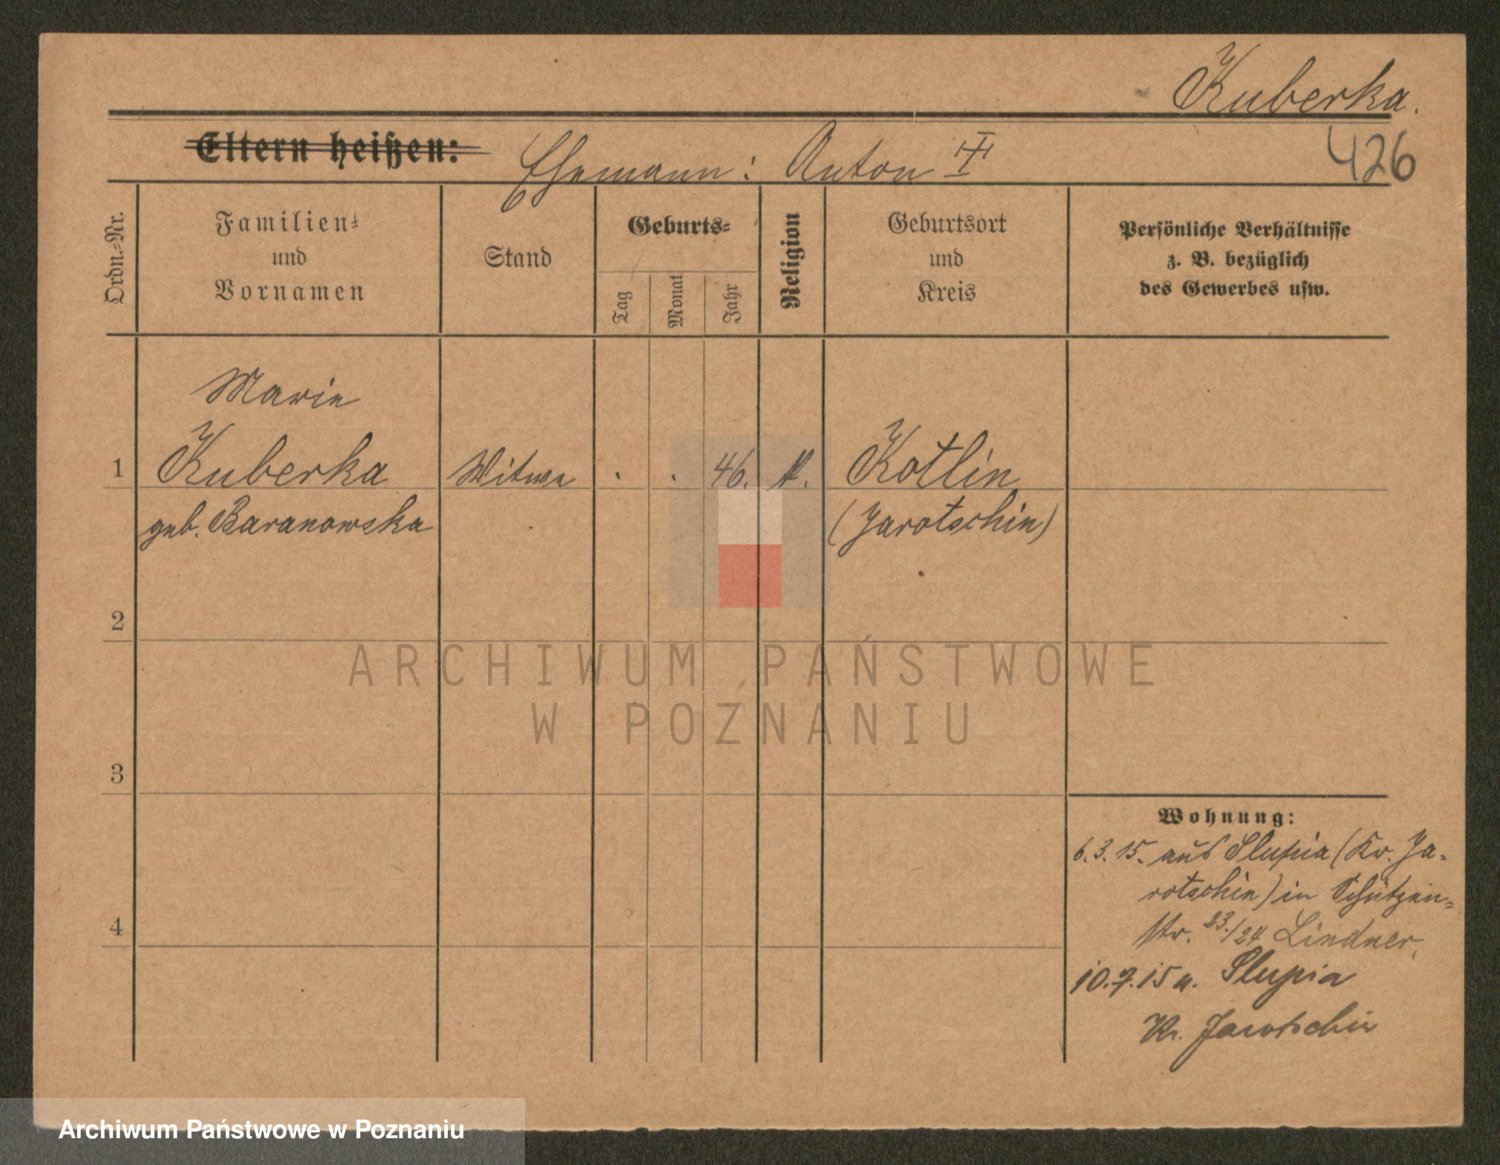 Kuberka.
426
Eltern heißen: Ehemann: Anton
Ordn.-Nr.
Familien- und Vornamen
Stand
Geburts-
Tag
Monat
Jahr
Religion
Geburtsort und Kreis
Persönliche Verhältnisse
z. B. bezüglich
des Gewerbes usw.
Marie
1 Kuberka Witwe . . 46. k. Kotlin
geb. Baranowska (Jarotschin)
2
ARCHIWUM PAŃSTWOWE
W POZNANIU
3
4
Wohnung:
6.3.15. aus Slupia (Kr. Ja-
rotschin) in Schützen-
str. 23./24 Lindner.
10.7.15 n. Slupia
Kr. Jarotschin
Archiwum Państwowe w Poznaniu